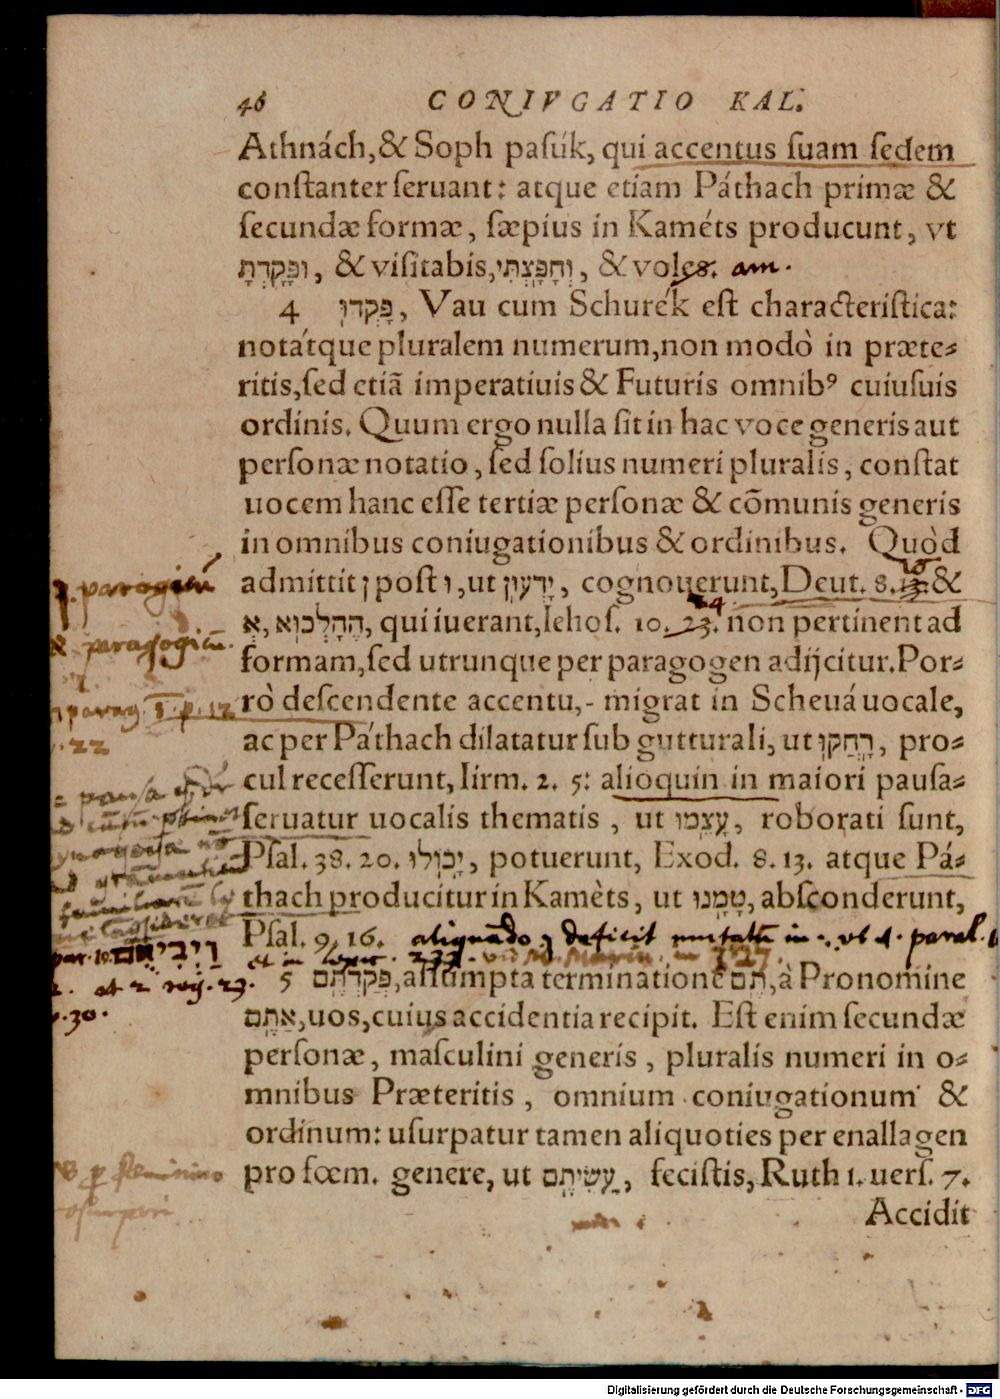 46 CONIVGATIO KAL.
Athnách, & Soph pasúk, qui accentus suam sedem
constanter seruant: atque etiam Páthach primæ &
secundæ formæ, sæpius in Kaméts producunt, vt
וּפָּקָדְתָּ, & visitabis, וְחָפָצְתִּי, & voles. am.
4 פָּקְדוּ, Vau cum Schurék est characteristica:
notátque pluralem numerum, non modò in præte-
ritis, sed etiã imperatiuis & Futuris omnibꝰ cuiusuis
ordinis. Quum ergo nulla sit in hac voce generis aut
personæ notatio, sed solius numeri pluralis, constat
uocem hanc esse tertiæ personæ & cõmunis generis
in omnibus coniugationibus & ordinibus. Quòd
admittit ן post ו, ut יָדְעוּן, cognouerunt, Deut. 8. &
א, הֶהָלְכוּא, qui iuerant, Iehos. 10. 23. 24. non pertinent ad
formam, sed utrunque per paragogen adijcitur. Por-
rò descendente accentu, - migrat in Scheuá uocale,
ac per Páthach dilatatur sub gutturali, ut רָחֲקוּ, pro-
cul recesserunt, Iirm. 2. 5: alioquin in maiori pausa-
seruatur uocalis thematis, ut עָצֵמוּ, roborati sunt,
Psal. 38. 20. יָכוֹלוּ, potuerunt, Exod. 8. 13. atque Pá-
thach producitur in Kamèts, ut טָמָנוּ, absconderunt,
Psal. 9. 16. aliquãdo ו deficit
5 פְּקַדְתֶּם, assumpta terminatione תֶּם, à Pronomine
אַתֶּם, uos, cuius accidentia recipit. Est enim secundæ
personæ, masculini generis, pluralis numeri in o-
mnibus Præteritis, omnium coniugationum &
ordinum: usurpatur tamen aliquoties per enallagen
pro fœm. genere, ut עֲשִׂיתֶם, fecistis, Ruth 1. uers. 7.
Accidit
paragogicũ
א paragogicũ.
parag. p. 12
22
pausa
et 2 reg. 23.
30.
fœminino
Digitalisierung gefördert durch die Deutsche Forschungsgemeinschaft - DFG